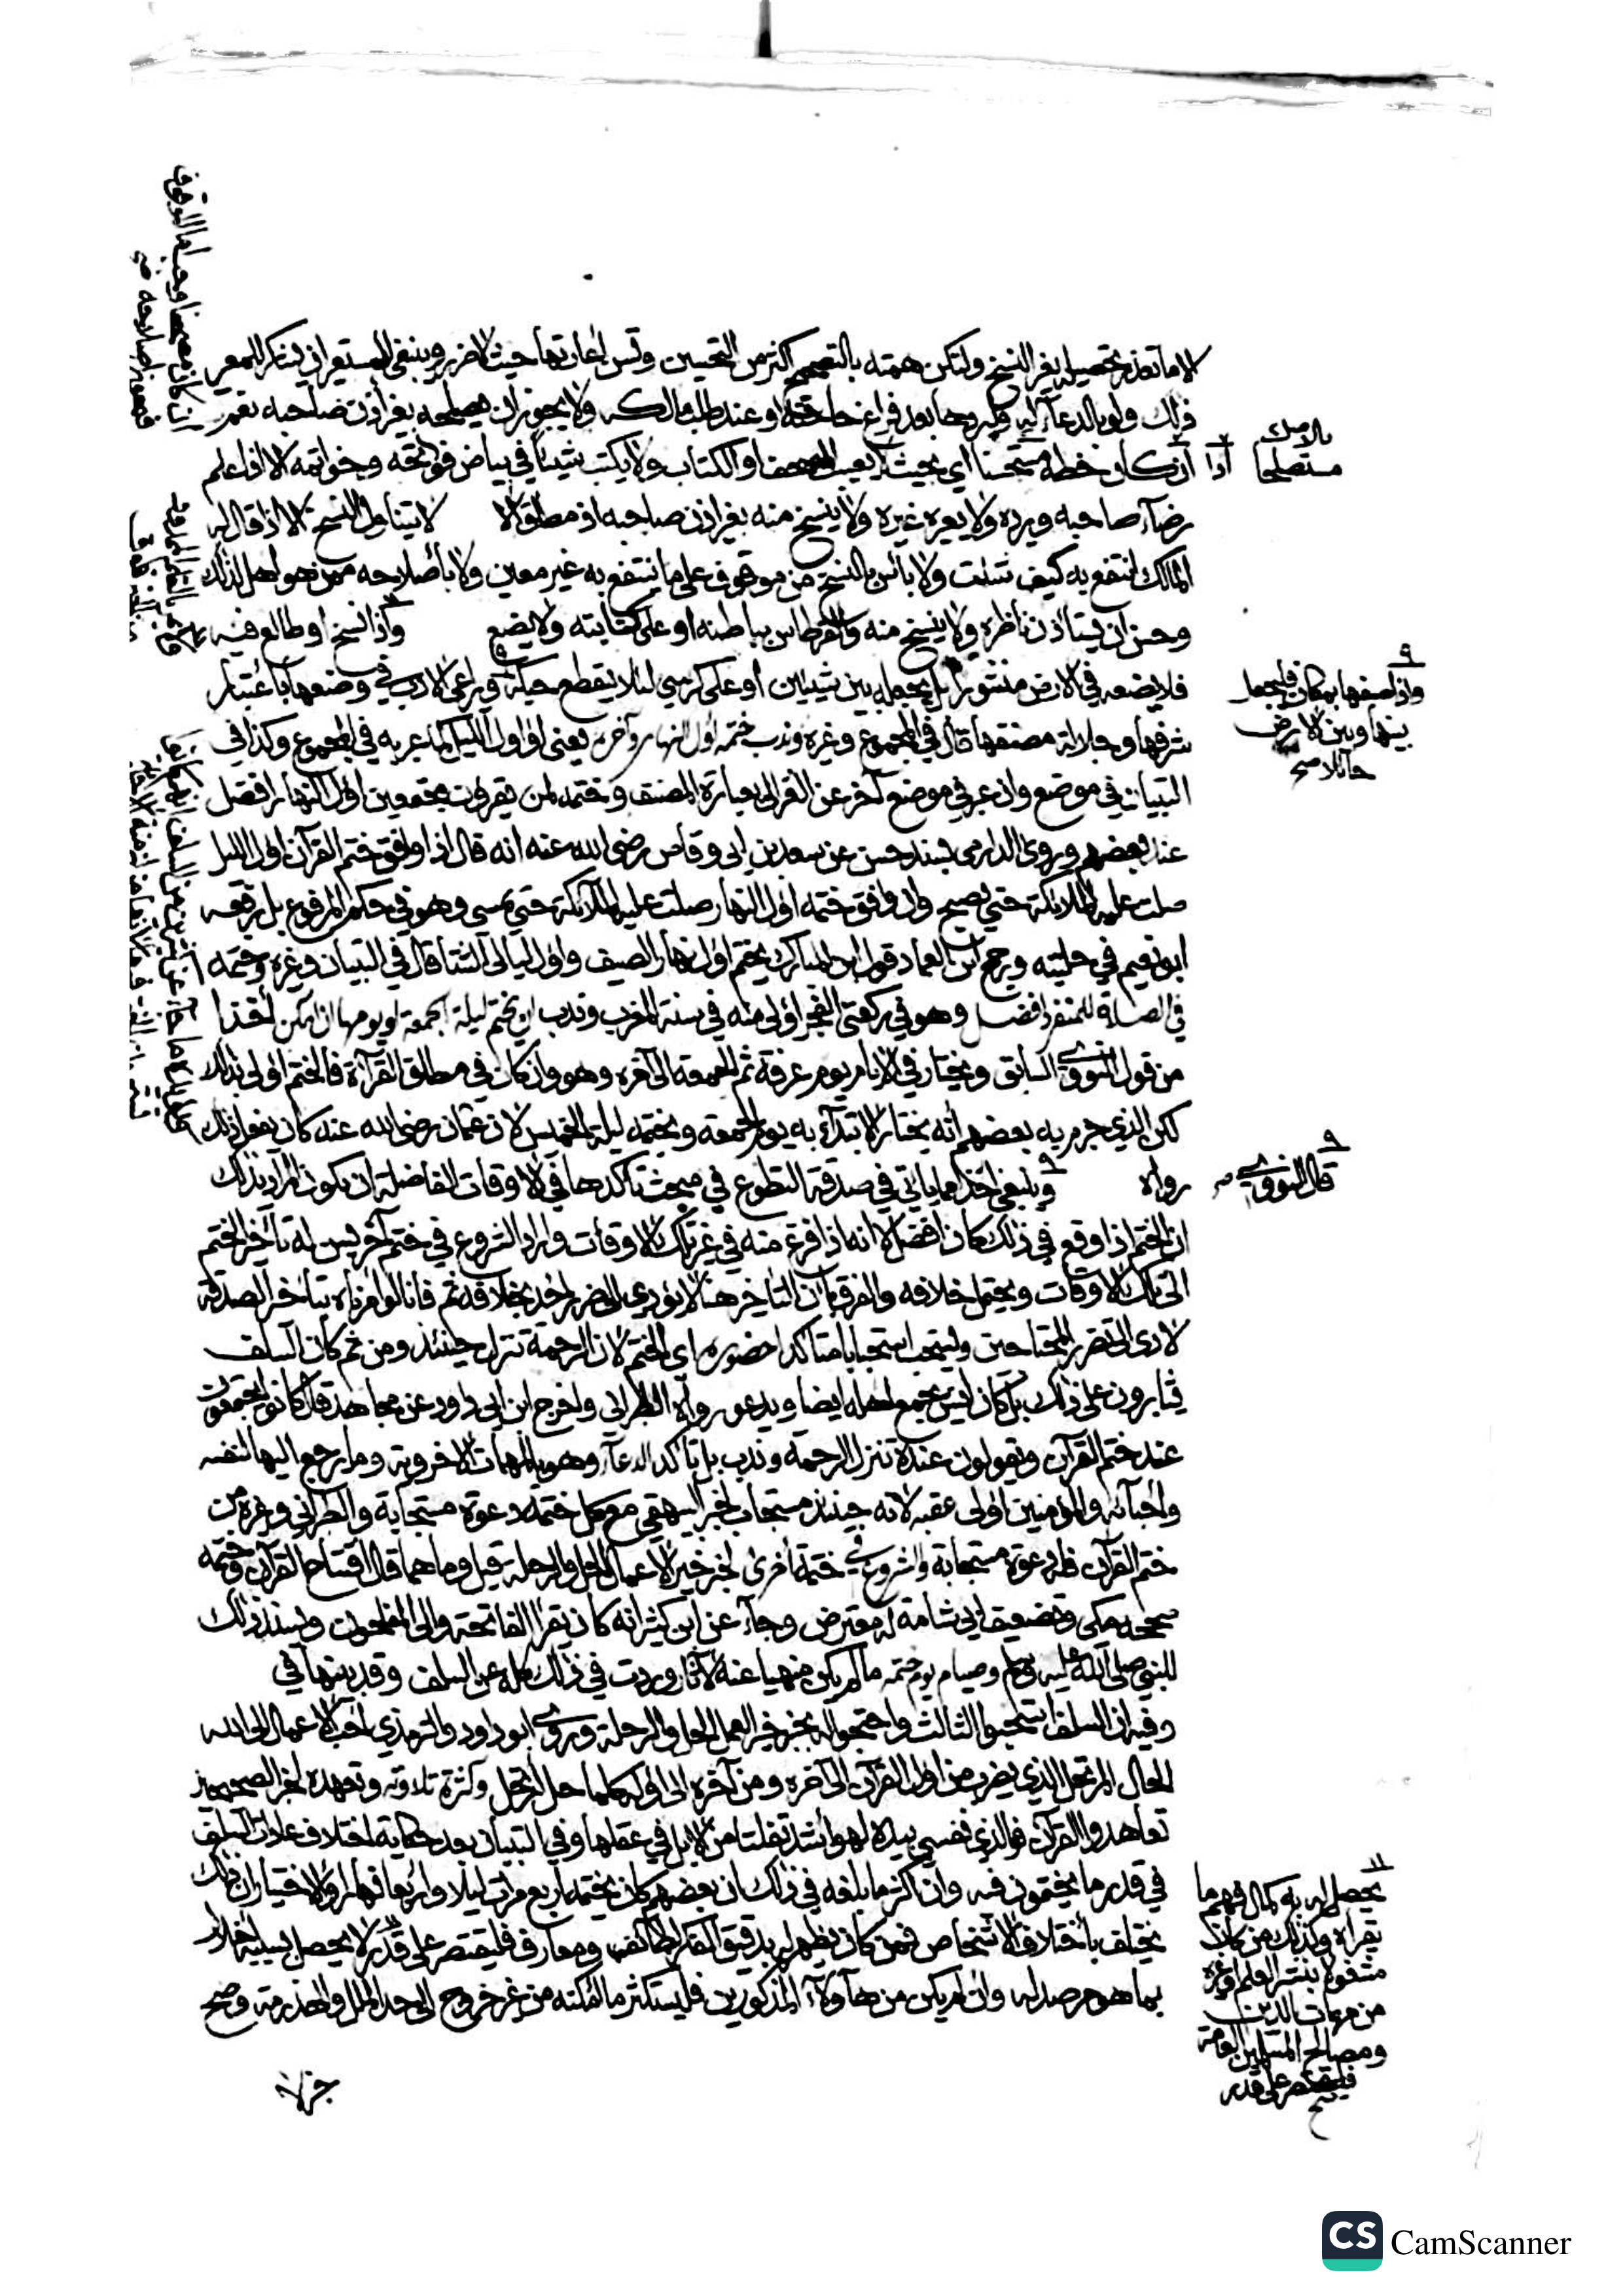 الا ما تعذر تحصيله بغير النسخ ولتكن همته بالتصحيح اكثر من التحسين وتسن اعارتها حيث لا ضرر وينبغي للمستعير ان يشكر للمعير
ذلك ولو بالدعاء له ويردها بعد فراغ حاجته او عند طلب مالكه ولا يجوز ان يصلحه بغير اذن صاحبه
ان كان خطه مستحسنا اي بحيث لا يعيب المصحف او الكتاب ولا يكتب شيئا في بياض فواتحه وخواتمه الا اذا علم
رضاء صاحبه ويرده ولا يعيره غيره ولا ينسخ منه بغير اذن صاحبه اذ مطلق الا لا يتناول النسخ الا اذا قال له
المالك انتفع به كيف شئت ولا باس بالنسخ من موقوف على ما ينتفع به غير معين ولا باصلاحه ممن هو اهل لذلك
وحسن ان يستاذن ناظره ولا ينسخ منه والقرطاس بباطنه او على كتابته ولا يضع واذا نسخ او طالع فيه
فلا يضعه في الارض منشورا بل يجعله بين شيئين او على كرسي لئلا يتقطع حبكه ويراعي الادب في وضعها باعتبار
شرفها وجلالة مصنفها قال في المجموع وغيره وندب ختمه اول النهار وآخره يعني او اول الليل كما عبر به في المجموع وكذا في
التبيان في موضع وان عبر في موضع آخر عن الغزالي بعبارة المصنف وختمه لمن يقرؤن مجتمعين اول النهار افضل
عند بعضهم وروى الدارمي بسند حسن عن سعد بن ابي وقاص رضي الله عنه انه قال اذا وافق ختم القرآن اول الليل
صلت عليه الملائكة حتى يصبح وان وافق ختمه اول النهار صلت عليه الملائكة حتى يمسي وهو في حكم المرفوع بل رفعه
ابو نعيم في حليته ورجح ابن العماد قول ابن المبارك يختم اول نهار الصيف واول ليالي الشتا قال في التبيان وغيره وختمه
في الصلاة للمنفرد افضل وهو في ركعتي الفجر اولى منه في سنة المغرب وندب ان يختم ليلة الجمعة او يومها ان امكن اخذا
من قول النووي السابق ويختار في الايام يوم عرفة ثم الجمعة الى آخره وهو وان كان في مطلق القرآءة فالختم اولى بذلك
لكن الذي جزم به بعضهم أنه يختار الابتدآء به يوم الجمعة ويختمه ليلة الخميس لان عثمان رضي الله عنه كان يفعل ذلك
رواه وينبغي اخذا مما ياتي في صدقة التطوع في مبحث تاكدها في الاوقات الفاضلة ان يكون المراد بذلك
ان الختم اذا وقع في ذلك كان افضل لا انه اذا فرغ منه في غير تلك الاوقات واراد الشروع في ختم آخر يسن له تأخير الختم
الى تلك الاوقات ويحتمل خلافه والفرق بان التاخير هنا لا يؤدي الى ضرر احد بخلافه ثم فانا لو امرناه بتأخير الصدقة
لادى الى تضرر المحتاجين ويستحب استحبابا متاكدا حضوره اي الختم لان الرحمة تنزل حينئذ ومن ثم كان السلف
يثابرون على ذلك بل كان انس يجمع اهله ايضا ويدعو رواه الطبراني واخرج ابن ابي داود عن مجاهد قال كانوا يجتمعون
عند ختم القرآن ويقولون عنده تنزل الرحمة وندب بل تاكد الدعآء وهو بالمهمات الاخروية وما يرجع اليها لنفسه
واحبآئه والمؤمنين اولى عقبه لانه حينئذ مستجاب لخبر البيهقي مع كل ختمة دعوة مستجابة والطبراني وغيره من
ختم القرآن فله دعوة مستجابة والشروع في ختمة اخرى لخبر خير الاعمال الحل والرحلة قيل وما هما قال افتتاح القرآن وختمه
صححه مكي وتضعيف ابي شامة له معترض وجآء عن ابن كثير انه كان يقرأ الفاتحة والى المفلحون ويسند ذلك
للنبي صلى الله عليه وسلم وصيام يوم ختمه ما لم يكن منهيا عنه لآثار وردت في ذلك كله عن السلف وقد بينتها في
وفيه ان السلف استحبوا الثالث واحتجوا له بخبر خير العمل الحل والرحلة وروى ابو داود والترمذي احب الاعمال الى الله
الحال المرتحل الذي يضرب من اول القرآن الى آخره ومن آخره الى اوله كلما حل ارتحل وكثرة تلاوته وتعهده لخبر الصحيحين
تعاهدوا القرآن فوالذي نفسي بيده لهو اشد تفلتا من الابل في عقلها وفي التبيان بعد حكاية اختلاف عادات السلف
في قدر ما يختمون فيه وان اكثر ما بلغه في ذلك ان بعضهم كان يختمه اربع مرات ليلا واربعا نهارا والاختيار ان ذلك
يختلف باختلاف الاشخاص فمن كان يظهر له بدقيق الفكر لطائف ومعارف فليقتصر على قدر لا يحصل بسببه اخلال
بما هو مرصد له وان لم يكن من هآؤلآء المذكورين فليستكثر ما امكنه من غير خروج الى حد الملل والهذرمة وصح
مستصلحا
واذا صفها بمكان فليجعل
بينها وبين الارض
حائلا صح
قال النووي
يحصل له به كمال فهم ما
يقرأه وكذلك من كان
مشغولا بنشر العلم او غيره
من مهمات الدين
ومصالح المسلمين العامة
فليقتصر على قدر
CS CamScanner